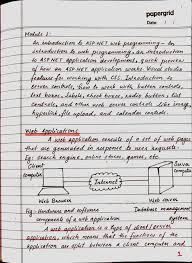 papergrid
Date: / /
Module 1:
An introduction to ASP.NET web programming - An
introduction to web programming, an introduction
to ASP.NET application development, quick preview
of how an ASP.NET application works. Visual studio
features for working with CSS. Introduction to
server controls, how to work with button controls,
text boxes, labels, check boxes, radio buttons, list
controls, and other web server controls like image,
hyperlink, file upload, and calendar controls.
Web Applications
A web application consists of a set of web pages
that are generated in response to user requests.
Eg: search engine, online stores, games, etc.
Client
computer
Internet
Server
computer
Web Browser
Web server
Fig: Hardware and software
components of a web application
Database management
system
A web application is a type of client/server
application, which means that the functions of the
application are split between a client computer and
1